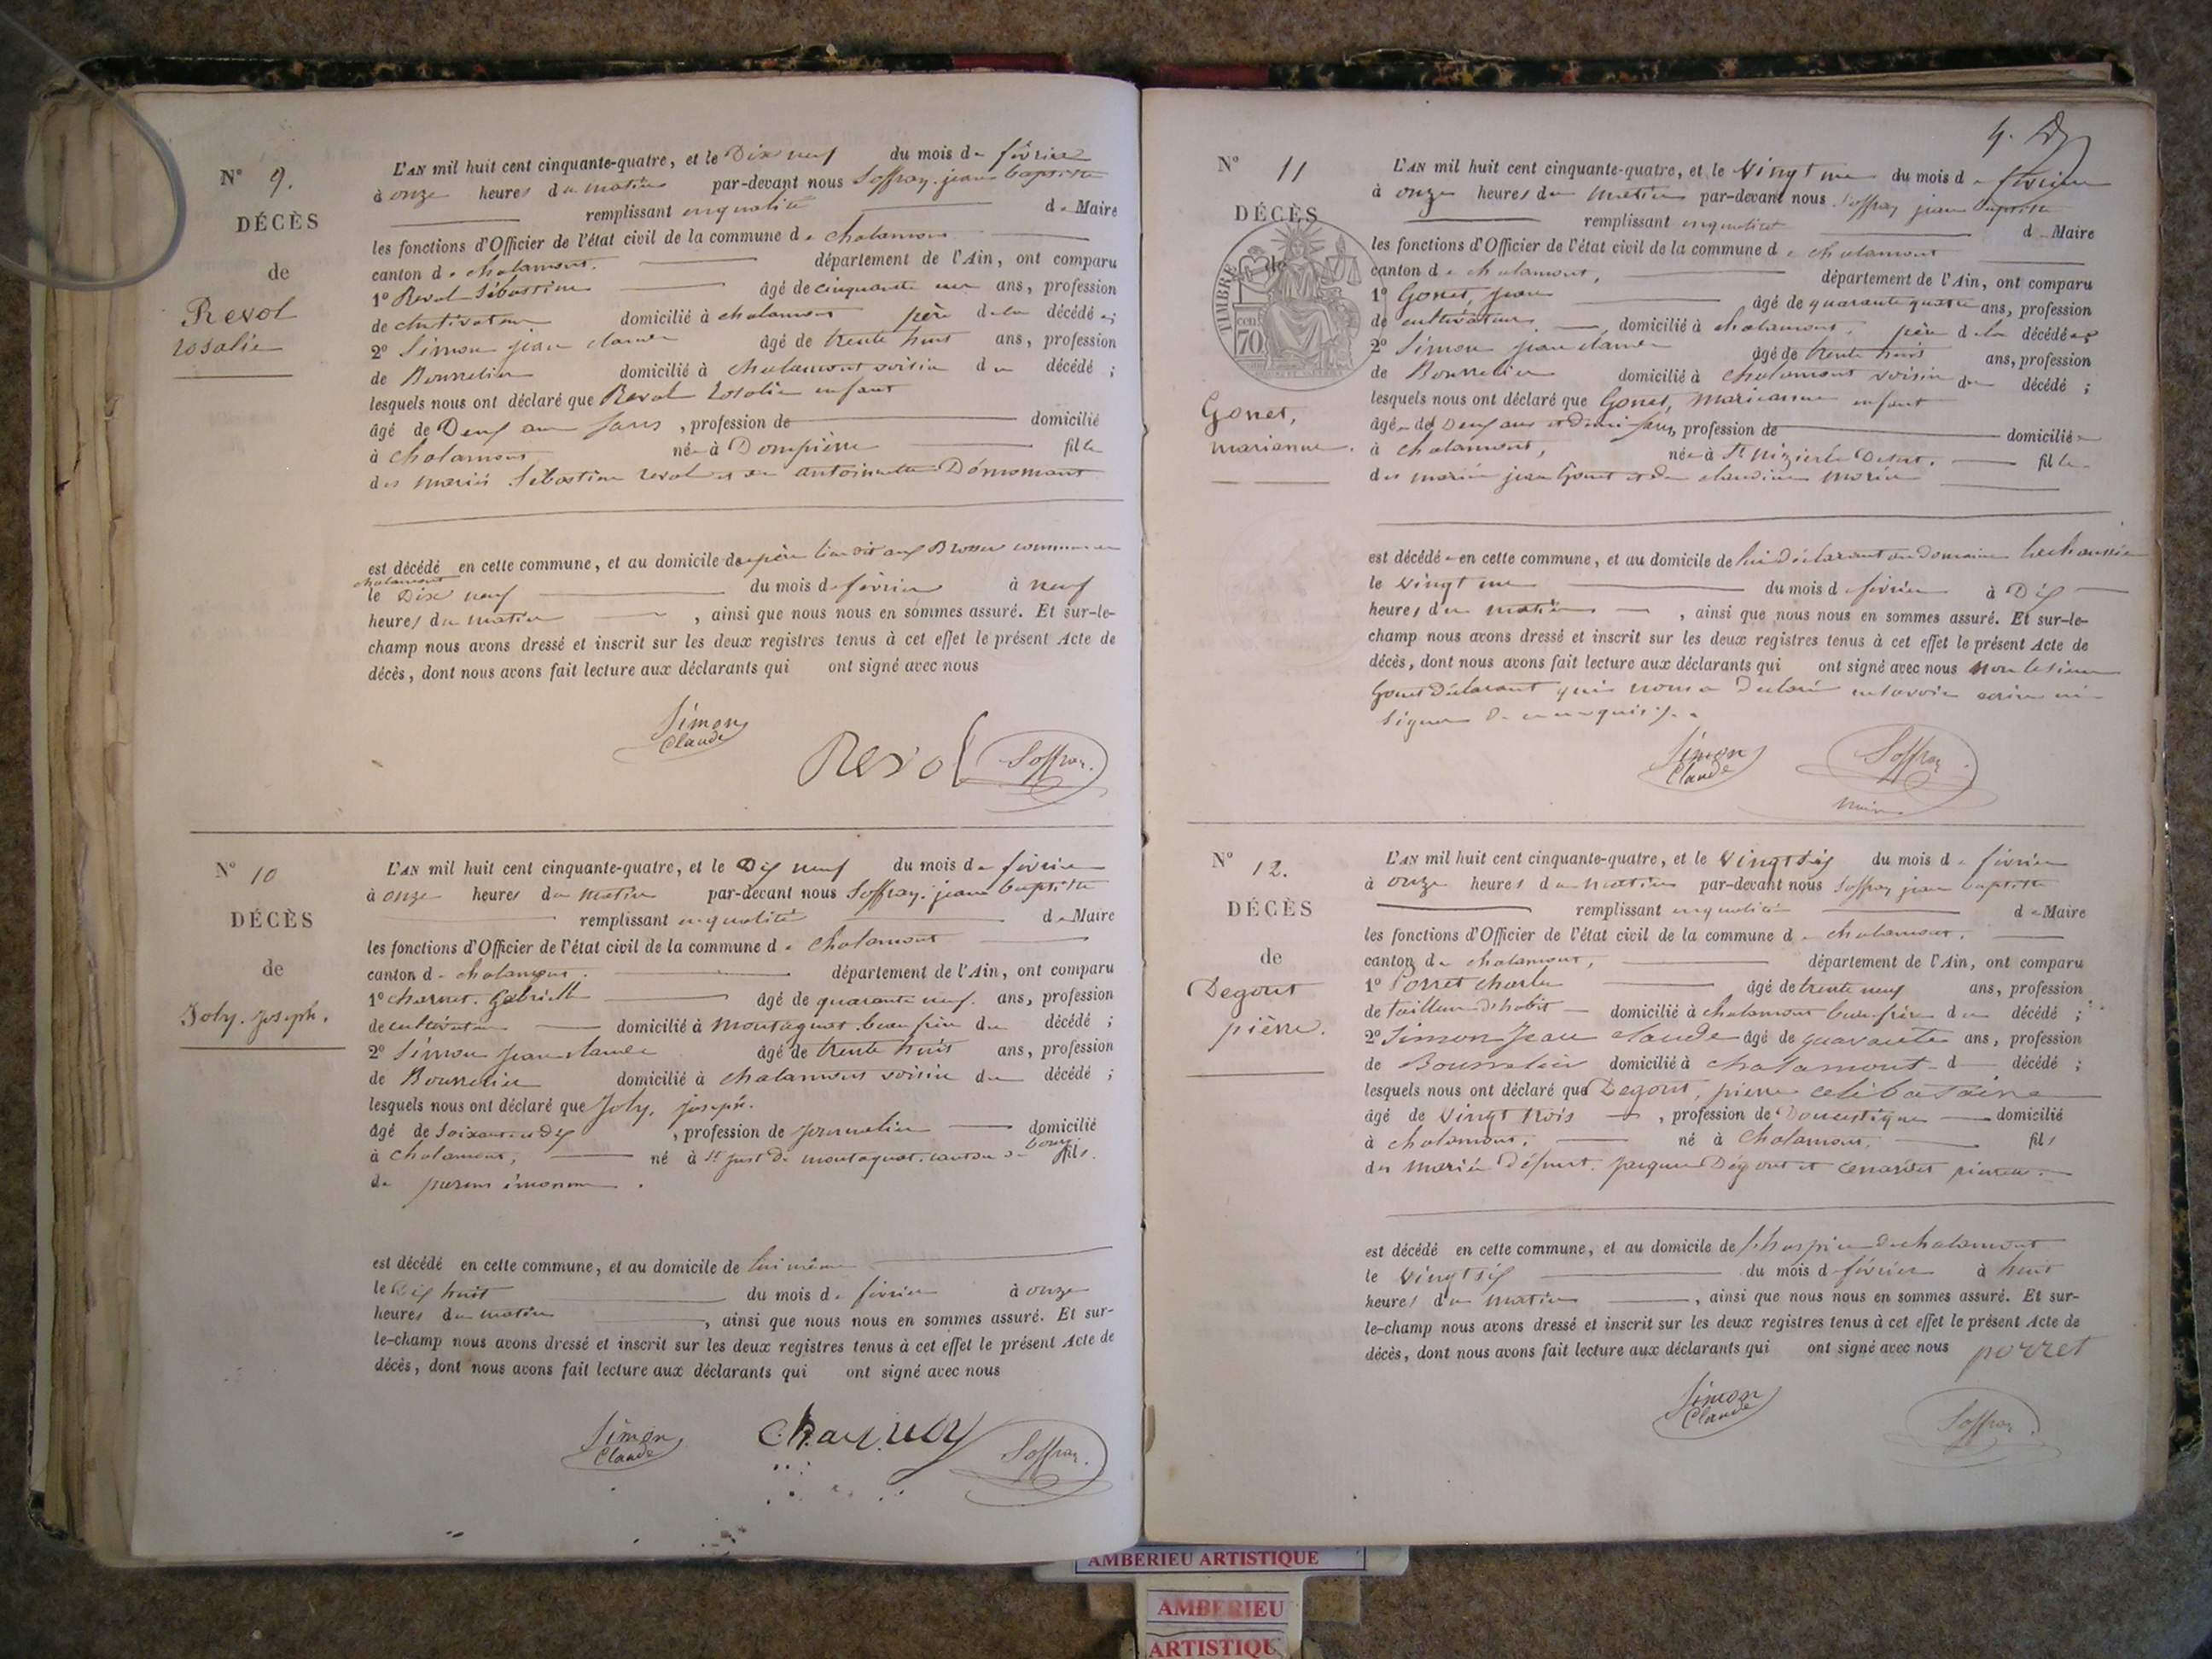 N° 9.
DÉCÈS
de
Revol
rosalie
L'AN mil huit cent cinquante-quatre, et le Dix neuf du mois de février
à onze heures du matin par-devant nous Soffray jean baptiste
remplissant en qualité de Maire
les fonctions d'Officier de l'état civil de la commune de chalamont
canton de chalamont. département de l'Ain, ont comparu
1° Revol Sébastien âgé de cinquante un ans, profession
de cultivateur domicilié à chalamont père de la décédée;
2° Simon jean claude âgé de trente huit ans, profession
de Bourrelier domicilié à chalamont voisin du décédé;
lesquels nous ont déclaré que Revol rosalie enfant
âgé de Deux ans, profession de domicilié
à chalamont née à Dompierre fille
des mariés Sébastien revol et de antoinette
est décédé en cette commune, et au domicile de père aux Brosses commune de
chalamont
le Dix neuf du mois de février à neuf
heures du matin, ainsi que nous nous en sommes assuré. Et sur-le-
champ nous avons dressé et inscrit sur les deux registres tenus à cet effet le présent Acte de
décès, dont nous avons fait lecture aux déclarants qui ont signé avec nous
Simon
Claude
Revol Soffray
N° 10
DÉCÈS
de
Joly. joseph.
L'AN mil huit cent cinquante-quatre, et le Dix neuf du mois de février
à onze heures du matin par-devant nous Soffray. jean baptiste
remplissant en qualité de Maire
les fonctions d'Officier de l'état civil de la commune de chalamont
canton de chalamont. département de l'Ain, ont comparu
1° charnet. Gabrielle âgé de quarante neuf. ans, profession
de cultivateur domicilié à montagnat. beau frère du décédé;
2° Simon jean claude âgé de trente huit ans, profession
de Bourrelier domicilié à chalamont voisin du décédé;
lesquels nous ont déclaré que Joly, joseph.
âgé de Soixante et dix, profession de journalier domicilié
à chalamont, né à St just de montagnat. canton de bourg fils.
de
est décédé en cette commune, et au domicile de lui même
le Dix huit du mois de février à onze
heures du matin, ainsi que nous nous en sommes assuré. Et sur-
le-champ nous avons dressé et inscrit sur les deux registres tenus à cet effet le présent Acte de
décès, dont nous avons fait lecture aux déclarants qui ont signé avec nous
Simon
Claude
Soffray
4.
N° 11
DÉCÈS
de
TIMBRE
cent
70
Gonet,
marianne.
L'AN mil huit cent cinquante-quatre, et le Vingt un du mois de février
à onze heures du matin par-devant nous Soffray jean baptiste
remplissant en qualité de Maire
les fonctions d'Officier de l'état civil de la commune de chalamont
canton de chalamont, département de l'Ain, ont comparu
1° Gonet, jean âgé de quarante quatre ans, profession
de cultivateur, domicilié à chalamont, père de la décédée;
2° Simon jean claude âgé de trente huit ans, profession
de Bourrelier domicilié à chalamont voisin du décédé;
lesquels nous ont déclaré que Gonet, marianne enfant
âgée de Deux ans et demi, profession de domiciliée
à chalamont, née à St nizier le Désert. fille
des mariés jean Gonet et de claudine
est décédée en cette commune, et au domicile de lui déclarant au domaine
le vingt un du mois de février à Dix
heures du matin, ainsi que nous nous en sommes assuré. Et sur-le-
champ nous avons dressé et inscrit sur les deux registres tenus à cet effet le présent Acte de
décès, dont nous avons fait lecture aux déclarants qui ont signé avec nous non le sieur
Gonet déclarant qui nous a déclaré ne savoir écrire ni
signer de ce requis.
Simon
Claude
Soffray
maire
N° 12.
DÉCÈS
de
Degout
pièrre.
L'AN mil huit cent cinquante-quatre, et le Vingt six du mois de février
à onze heures du matin par-devant nous Soffray jean baptiste
remplissant en qualité de Maire
les fonctions d'Officier de l'état civil de la commune de chalamont.
canton de chalamont, département de l'Ain, ont comparu
1° Porret charles âgé de trente neuf ans, profession
de tailleur d'habit domicilié à chalamont beau frère du décédé;
2° Simon Jean claude âgé de quarante ans, profession
de Bourrelier domicilié à chalamont d décédé;
lesquels nous ont déclaré que Degout, pierre celibataire
âgé de vingt trois, profession de Domestique domicilié
à chalamont, né à Chalamont, fils
des mariés défunt. jacques Dégout et
est décédé en cette commune, et au domicile de l'hospice de chalamont
le vingt six du mois de février à huit
heures du matin, ainsi que nous nous en sommes assuré. Et sur-
le-champ nous avons dressé et inscrit sur les deux registres tenus à cet effet le présent Acte de
décès, dont nous avons fait lecture aux déclarants qui ont signé avec nous porret
Simon
Claude
Soffray
AMBERIEU ARTISTIQUE
AMBERIEU
ARTISTIQUE